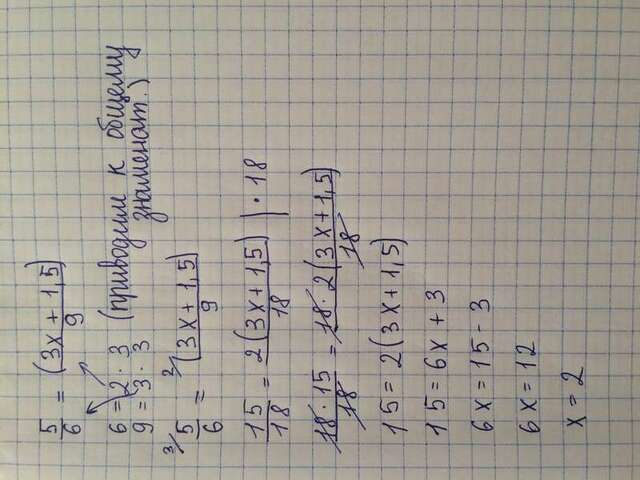 5/6 = (3x + 1,5)/9
6 = 2 · 3 (приводим к общему
9 = 3 · 3 знаменат.)
3/ 5/6 = 2/ (3x + 1,5)/9
15/18 = 2(3x + 1,5)/18 | · 18
18 · 15/18 = 18 · 2(3x + 1,5)/18
15 = 2(3x + 1,5)
15 = 6x + 3
6x = 15 - 3
6x = 12
x = 2